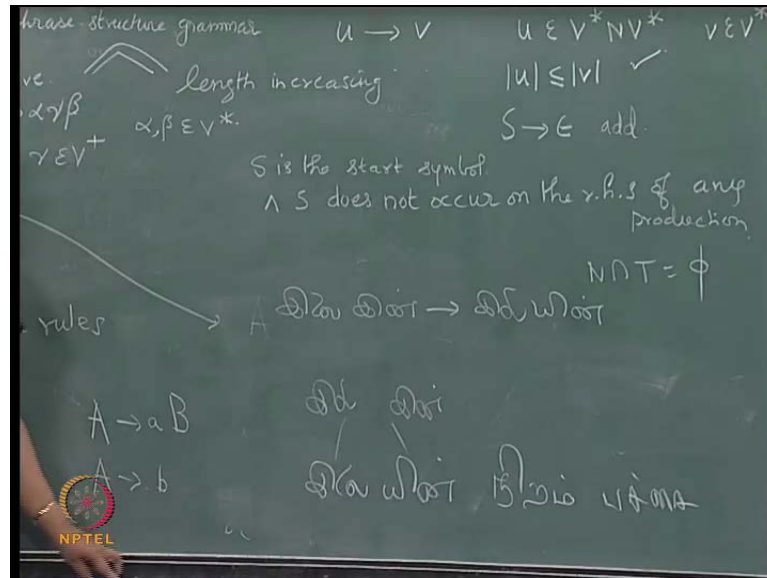 hrase-structure grammar u → v u ε V* N V* v ε V*
ve. length increasing |u| ≤ |v| ✓
αγβ α, β ε V*. S → ε add.
γ ε V⁺
S is the start symbol.
∧ S does not occur on the r.h.s of any
production
N ∩ T = ϕ
rules A இலை இன் →
A → a B
A → b இலை யின் நிறம் பச்சை
NPTEL